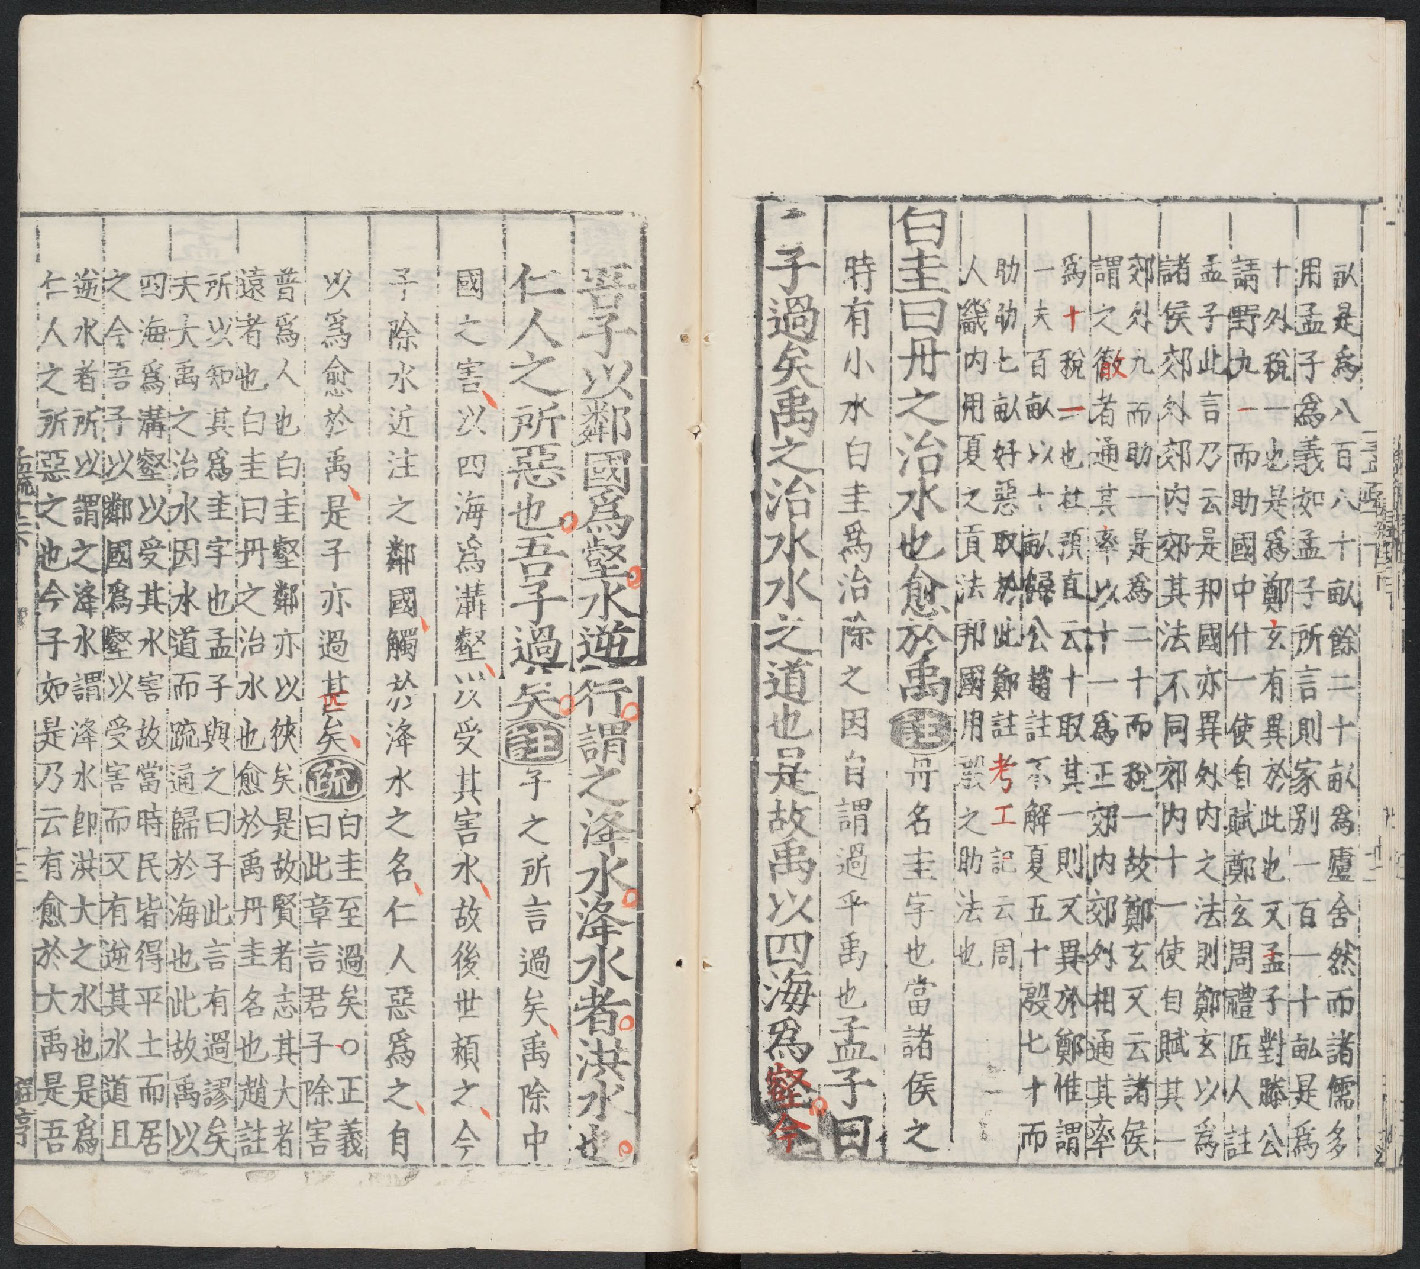 畝是爲八百八十畝餘二十畝爲廬舍然而諸儒多
用孟子爲義如孟子所言則家别一百一十畝是爲
十外稅一也是爲鄭玄有異於此也又孟子對滕公
請野九一而助國中什一使自賦鄭玄周禮匠人註
孟子此言乃云是邦國亦異外内之法則鄭玄以爲
諸侯郊外郊内郊其法不同郊内十一使自賦其一
郊外九而助一是爲二十而稅一故鄭玄又云諸侯
謂之徹者通其率以十一爲正郊内郊外相通其率
爲十稅一也杜預直云十取其一則又異於鄭惟謂
一夫百畝以十畝歸公趙註不解夏五十殷七十而
助助七畝好惡取於此鄭註考工記云周
人畿内用夏之貢法邦國用殷之助法也
白圭曰丹之治水也愈於禹註丹名圭字也當諸侯之
時有小水白圭爲治除之因自謂過乎禹也孟子曰
子過矣禹之治水水之道也是故禹以四海爲壑今
吾子以鄰國爲壑水逆行謂之洚水洚水者洪水也
仁人之所惡也吾子過矣註子之所言過矣禹除中
國之害以四海爲溝壑以受其害水故後世頼之今
子除水近注之鄰國觸於洚水之名仁人惡爲之自
以爲愈於禹是子亦過甚矣疏白圭至過矣○正義
曰此章言君子除害
普爲人也白圭壑鄰亦以狹矣是故賢者志其大者
遠者也白圭曰丹之治水也愈於禹丹圭名也趙註
所以知其爲圭字也孟子與之曰子此言有過謬矣
夫大禹之治水因水道而疏通歸於海也此故禹以
四海爲溝壑以受其水害故當時民皆得平土而居
之今吾子以鄰國爲壑以受害而又有逆其水道且
逆水者所以謂之洚水謂洚水卽洪大之水也是爲
仁人之所惡之也今子如是乃云有愈於大禹是吾